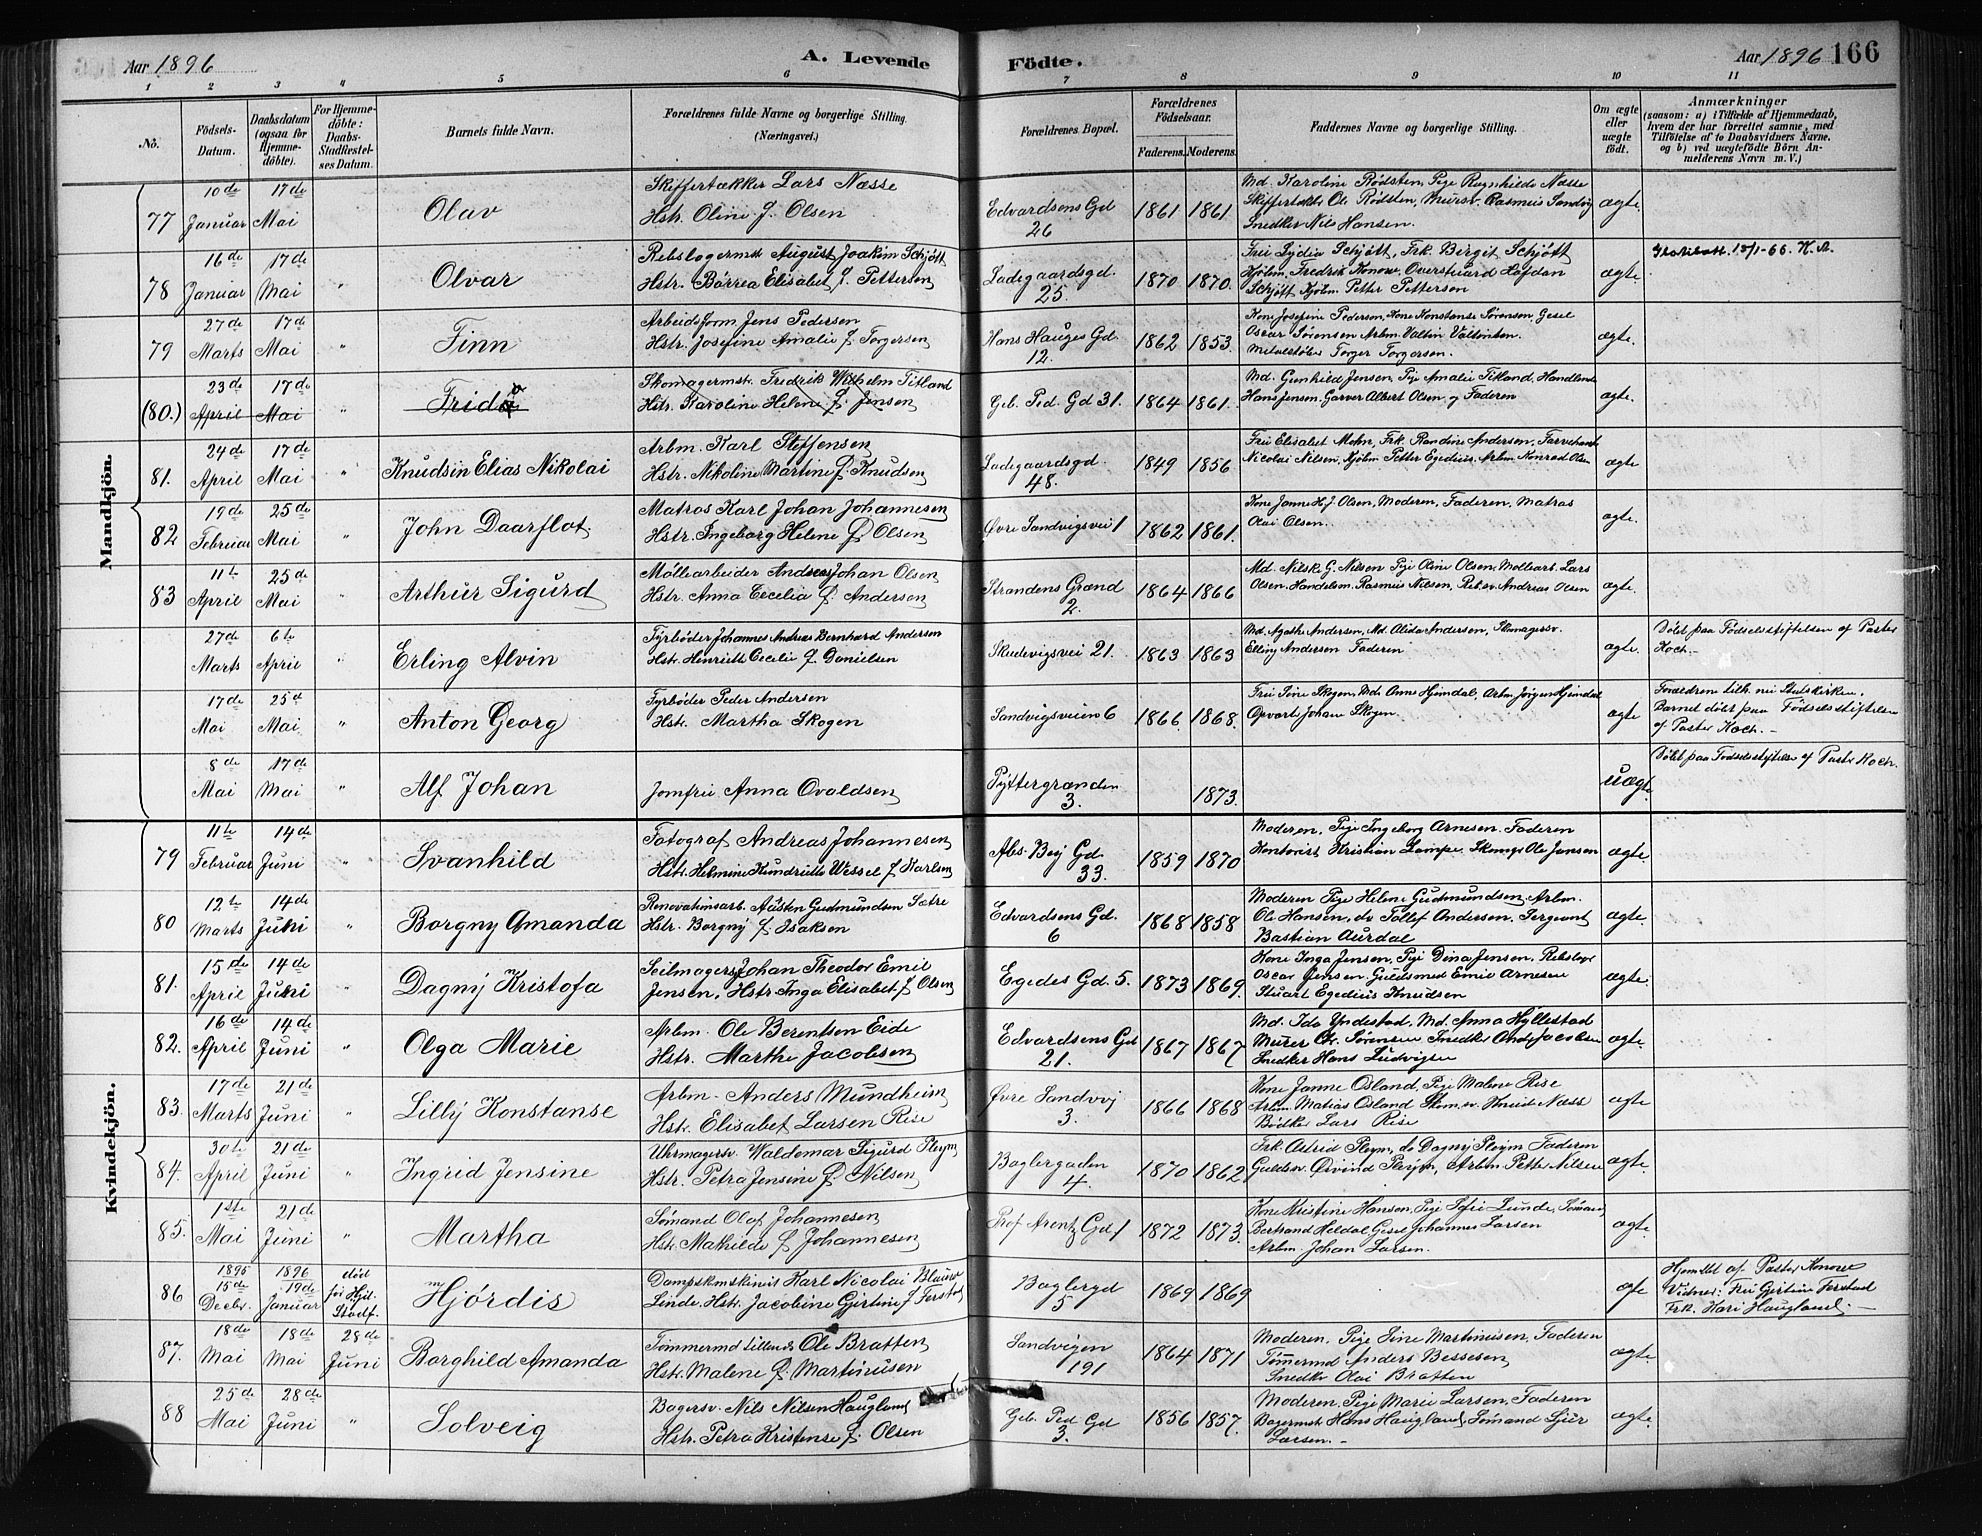 Aar 1896
A. Levende Födte.
Aar 1896 166
1 2 3 4 5 6 7 8 9 10 11
No.
Födsels-Datum.
Daabsdatum (ogsaa for Hjemme-döbte).
For Hjemme-döbte: Daabs-Stadfæstel-ses Datum.
Barnets fulde Navn.
Forældrenes fulde Navne og borgerlige Stilling. (Næringsvei.)
Forældrenes Bopæl.
Forældrenes Födselsaar.
Faderens. Moderens.
Faddernes Navne og borgerlige Stilling.
Om ægte eller uægte födt.
Anmærkninger
(saasom: a) i Tilfælde af Hjemmedaab, hvem der har forrettet samme, med Tilföielse af to Daabsvidners Navne, og b) ved uægtefödte Börn Anmelderens Navn m. V.)
Mandkjön.
77 10de Januar 17de Mai Olav
Skiffertækker Lars Næsse
Hstr. Oline f. Olsen
Edvardsens Gd 26 1861 1861
Md. Karoline Rødsten, Pige Ragnhilde Næsse
Skiffertækk. Ole Rødsten, Mursv. Rasmus Sandvig
Snedker Nils Hansen. ægte.
78 16de Januar 17de Mai " Olvar
Rebslagermstr August Joakim Schjøtt
Hstr. Børrea Elisabet f. Pettersen
Ladegaardsgd. 25. 1870 1870.
Fru Lydia Schjøtt, Frk. Bergit Schjøtt
Kjøbm. Fredrik Konow, Overstyrmd Halfdan
Schjøtt Kjøbm. Petter Pettersen ægte.
79 27de Marts 17de Mai " Finn
Arbeidsform. Jens Pedersen
Hstr. Josefine Amalie f. Torgersen
Hans Hauges Gd. 12. 1862 1853.
Kone Josefine Pedersen, Kone Konstanse Sørensen Gesel
Oscar Sørensen Arbm. Valtin Valtinsen.
Metalstøber Torger Torgersen. ægte.
(80.) 23de April 17de Mai " Frida
Skomagermstr. Fredrik Wilhelm Titland
Hstr. Karoline Helene f. Jensen
Geb. Ped. Gd 31. 1864 1861.
Md. Gunhild Jensen, Pige Amalie Titland, Handlende
Hans Jensen, Garver Albert Olsen og Faderen ægte.
81. 24de April 17de Mai " Knudsin Elias Nikolai
Arbm. Karl Steffensen
Hstr. Nikoline Martine f. Knudsen
Ladegaardsgd. 48. 1849 1856
Fru Elisabet Mohn, Frk. Randine Andersen, Farvehandl
Nicolai Nilsen, Kjøbm. Petter Egedius, Arbm Konrad Olsen ægte
82 19de Februar 25de Mai " John Daarflot.
Matros Karl Johan Johannesen
Hstr. Ingeborg Helene f. Olsen
Øvre Sandvigsvei 1 1862 1861.
Kone Janne H. J. Olsen, Moderen, Faderen, Matros
Olai Olsen. ægte.
83 11te April 25de Mai " Arthur Sigurd
Møllearbeider Andreas Johan Olsen
Hstr. Anna Cecelia f. Andersen
Strandens Grand 2. 1864 1866
Md. Nilsk. G. Nilsen Pige Oline Olsen, Møllearb. Lars
Olsen. Handelsm. Rasmus Nilsen, Reb.sv. Andreas Olsen ægte.
27de Marts 6te April " Erling Alvin
Fyrbøder Johannes Andreas Bernhard Andersen
Hstr. Henriette Cecelie f. Danielsen
Skudevigsvei 21. 1863 1863
Md. Agathe Andersen, Md. Alida Andersen, Skomagersv.
Elling Andersen Faderen ægte.
Døbt paa Fødselsstiftelsen af Pastor Koch.-
17de Mai 25de Mai. " Anton Georg
Fyrbøder Peder Andersen
Hstr. Martha Skogen
Sandvigsveien 6 1866. 1868.
Fru Sine Skogen, Md. Anne Hjemdal, Arbm. Jørgen Hjemdal
Opvart. Johan Skogen ægte
Forældrene tilh. nu Statskirken.
Barnet døbt paa Fødselsstiftelsen
af Pastor Koch.-
8de Mai 17de Mai " Alf Johan
Jomfru Anna Ovaldsen
Pyttergranden 3. 1873. uægte.
Døbt paa Fødselsstiftelsen af Pastor Koch.
Kvindekjön.
79 11te Februar 14de Juni " Svanhild
Fotograf Andreas Johannesen
Hstr. Helmine Hendriette Wessel f. Karlsen
Abs. Beij Gd. 33. 1859 1870
Moderen, Pige Ingeborg Arnesen. Faderen
Kontorist Kristian Lampe. Skomgr Ole Jansen ægte
80 12te Marts 14de Juni " Borgny Amanda
Renovationsarb. Austen Gudmundsen Sætre
Hstr. Borgny f. Isaksen
Edvardsens Gd. 6 1868 1858
Moderen Pige Helene Gudmundsen, Arbm.
Ole Hansen, do Tollef Andersen, Sergeant
Bastian Aurdal ægte.
81. 15de April 14de Juni " Dagny Kristofa
Seilmagers. Johan Theodor Emil
Jensen, Hstr. Inga Elisabet f. Olsen
Egedes Gd. 5. 1873 1869.
Kone Inga Jensen, Pige Dina Jensen, Rebslagr
Oscar Jensen. Guldsmed Emil Arnesen
Stuart Egedius Knudsen ægte.
82. 16de April 14de Juni " Olga Marie
Arbm. Ole Berentsen Eide
Hstr. Marthe Jacobsen
Edvardsens Gd 21. 1867 1867
Md. Ida Yndestad, Md. Anna Hyllestad
Murer Chr. Sørensen Snedker Ands Jacobsen
Snedker Hans Ludvigsen ægte.
83. 17de Marts 21de Juni " Lilly Konstanse
Arbm. Anders Mundheim
Hstr. Elisabet Larsen Rise
Øvre Sandvvj 3. 1866 1868
Kone Janne Osland, Pige Malene Rise
Arbm. Matias Osland Skom.sv. Knud Næss
Bødker Lars Rise ægte
84. 30te April 21de Juni " Ingrid Jensine
Uhrmagersv. Waldemar Sigurd Pleym
Hstr. Petra Jensine f. Nilsen
Baglergaden 4. 1870 1862
Frk. Astrid Pleym, do Dagny Pleym Faderen
Guldsv. Øivind Pleym, Arbm. Petter Nilsen ægte.
85. 1ste Mai 21de Juni " Martha
Sømand Olaf Johannesen
Hstr. Mathilde f. Johannesen
Prof Arentz Gd 1 1872 1873.
Kone Kristine Hansen, Pige Sofie Lunde, Sømand
Bertrand Heldal, Gesel Johannes Larsen
Arbm. Johan Larsen. ægte.
86 1895 15de Decbr. 1896 19de Januar død før Hjd. Stadf. Hjørdis
Dampskmskinist Karl Nicolai Blauw
Linde. Hstr. Jacobine Gjertine f. Forstad
Baglergd 5 1869 1869 ægte
Hjemdbt af Pastor Konow
Vidner: Fru Gjertine Forstad
Frk. Kari Haugland.-
87. 18de Mai 18de Mai 28de Juni Borghild Amanda
Tømmermd Ole Bratten
Hstr. Malene f. Martinusen
Sandvigen 191 1864 1871
Moderen. Pige Sine Martinusen, Faderen
Tømmermd Anders Bessesen
Snedker Olai Bratten ægte.
88 25de Mai 28de Juni " Solveig
Bagersv. Nils Nilsen Haugland
Hstr. Petra Kristense f. Olsen
Geb. Ped Gd 3. 1856 1857.
Moderen. Pige Marie Larsen, Faderen
Bagermstr Hans Haugland, Sømand Sjur
Larsen.- ægte.